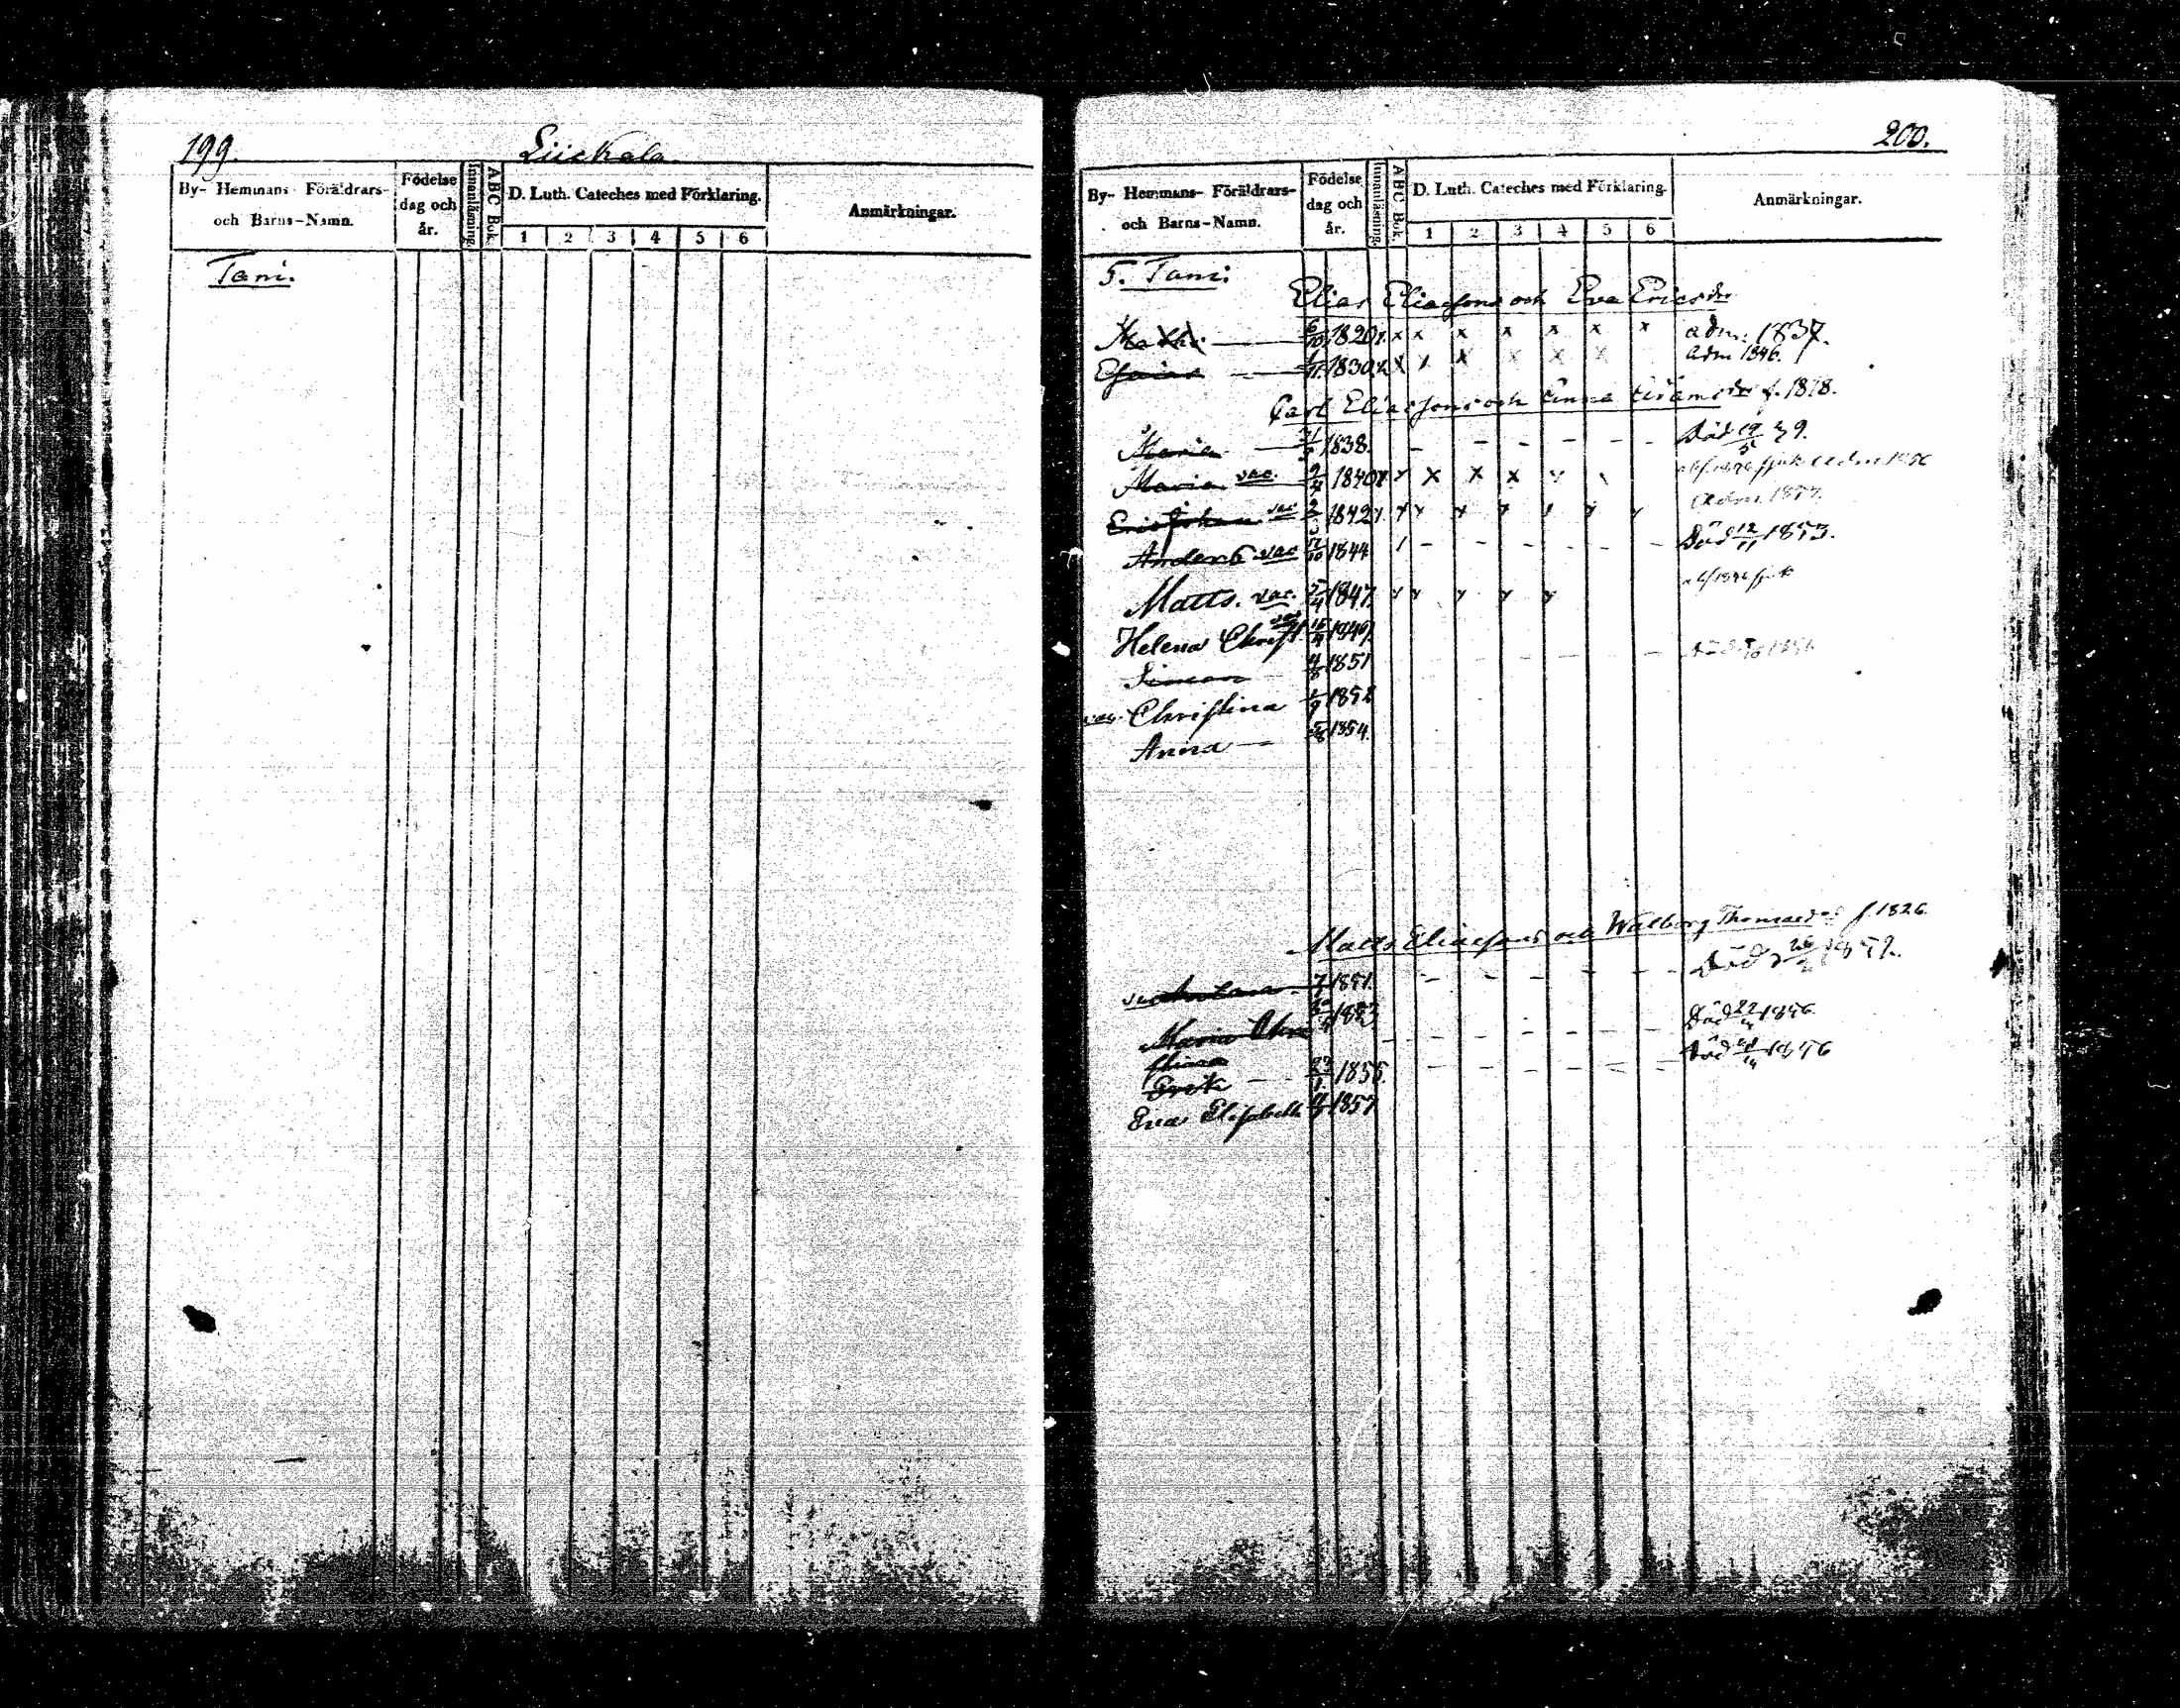 199.
Liickala
By- Hemmans- Föräldrars- och Barns-Namn.
Födelse dag och år.
Innanläsning.
ABC Bok.
D. Luth. Cateches med Förklaring.
1 2 3 4 5 6
Anmärkningar.
Tani.
200.
By- Hemmans- Föräldrars- och Barns-Namn.
Födelse dag och år.
Innanläsning.
ABC Bok.
D. Luth. Cateches med Förklaring.
1 2 3 4 5 6
Anmärkningar.
5. Tani.
Elias Eliassons och Eva Ericsdr
6/10 1820 x x x x x x x adm. 1837.
Esaias 1830 adm 1846.
Carl Eliassons och f. 1818.
Maria 1838. Död 19/5 39.
Maria vac. 9/4 1840 x x x x
Eric Johan vac 1842 Adm. 1857.
Anders vac 1844 Död 12/11 1853.
Matts. vac. 5/4 1847.
Helena Christ vac 1849
Simeon 4/8 1851
vac. Christina 1/9 1852
Anna 1854.
Matts Eliassons och Walborg Thomasdr f. 1826.
1851. Död
Maria Christina 1853 Död 22/4 1856.
Erik 27/1 1855. Död 1856
Eva Elisabeth 1857